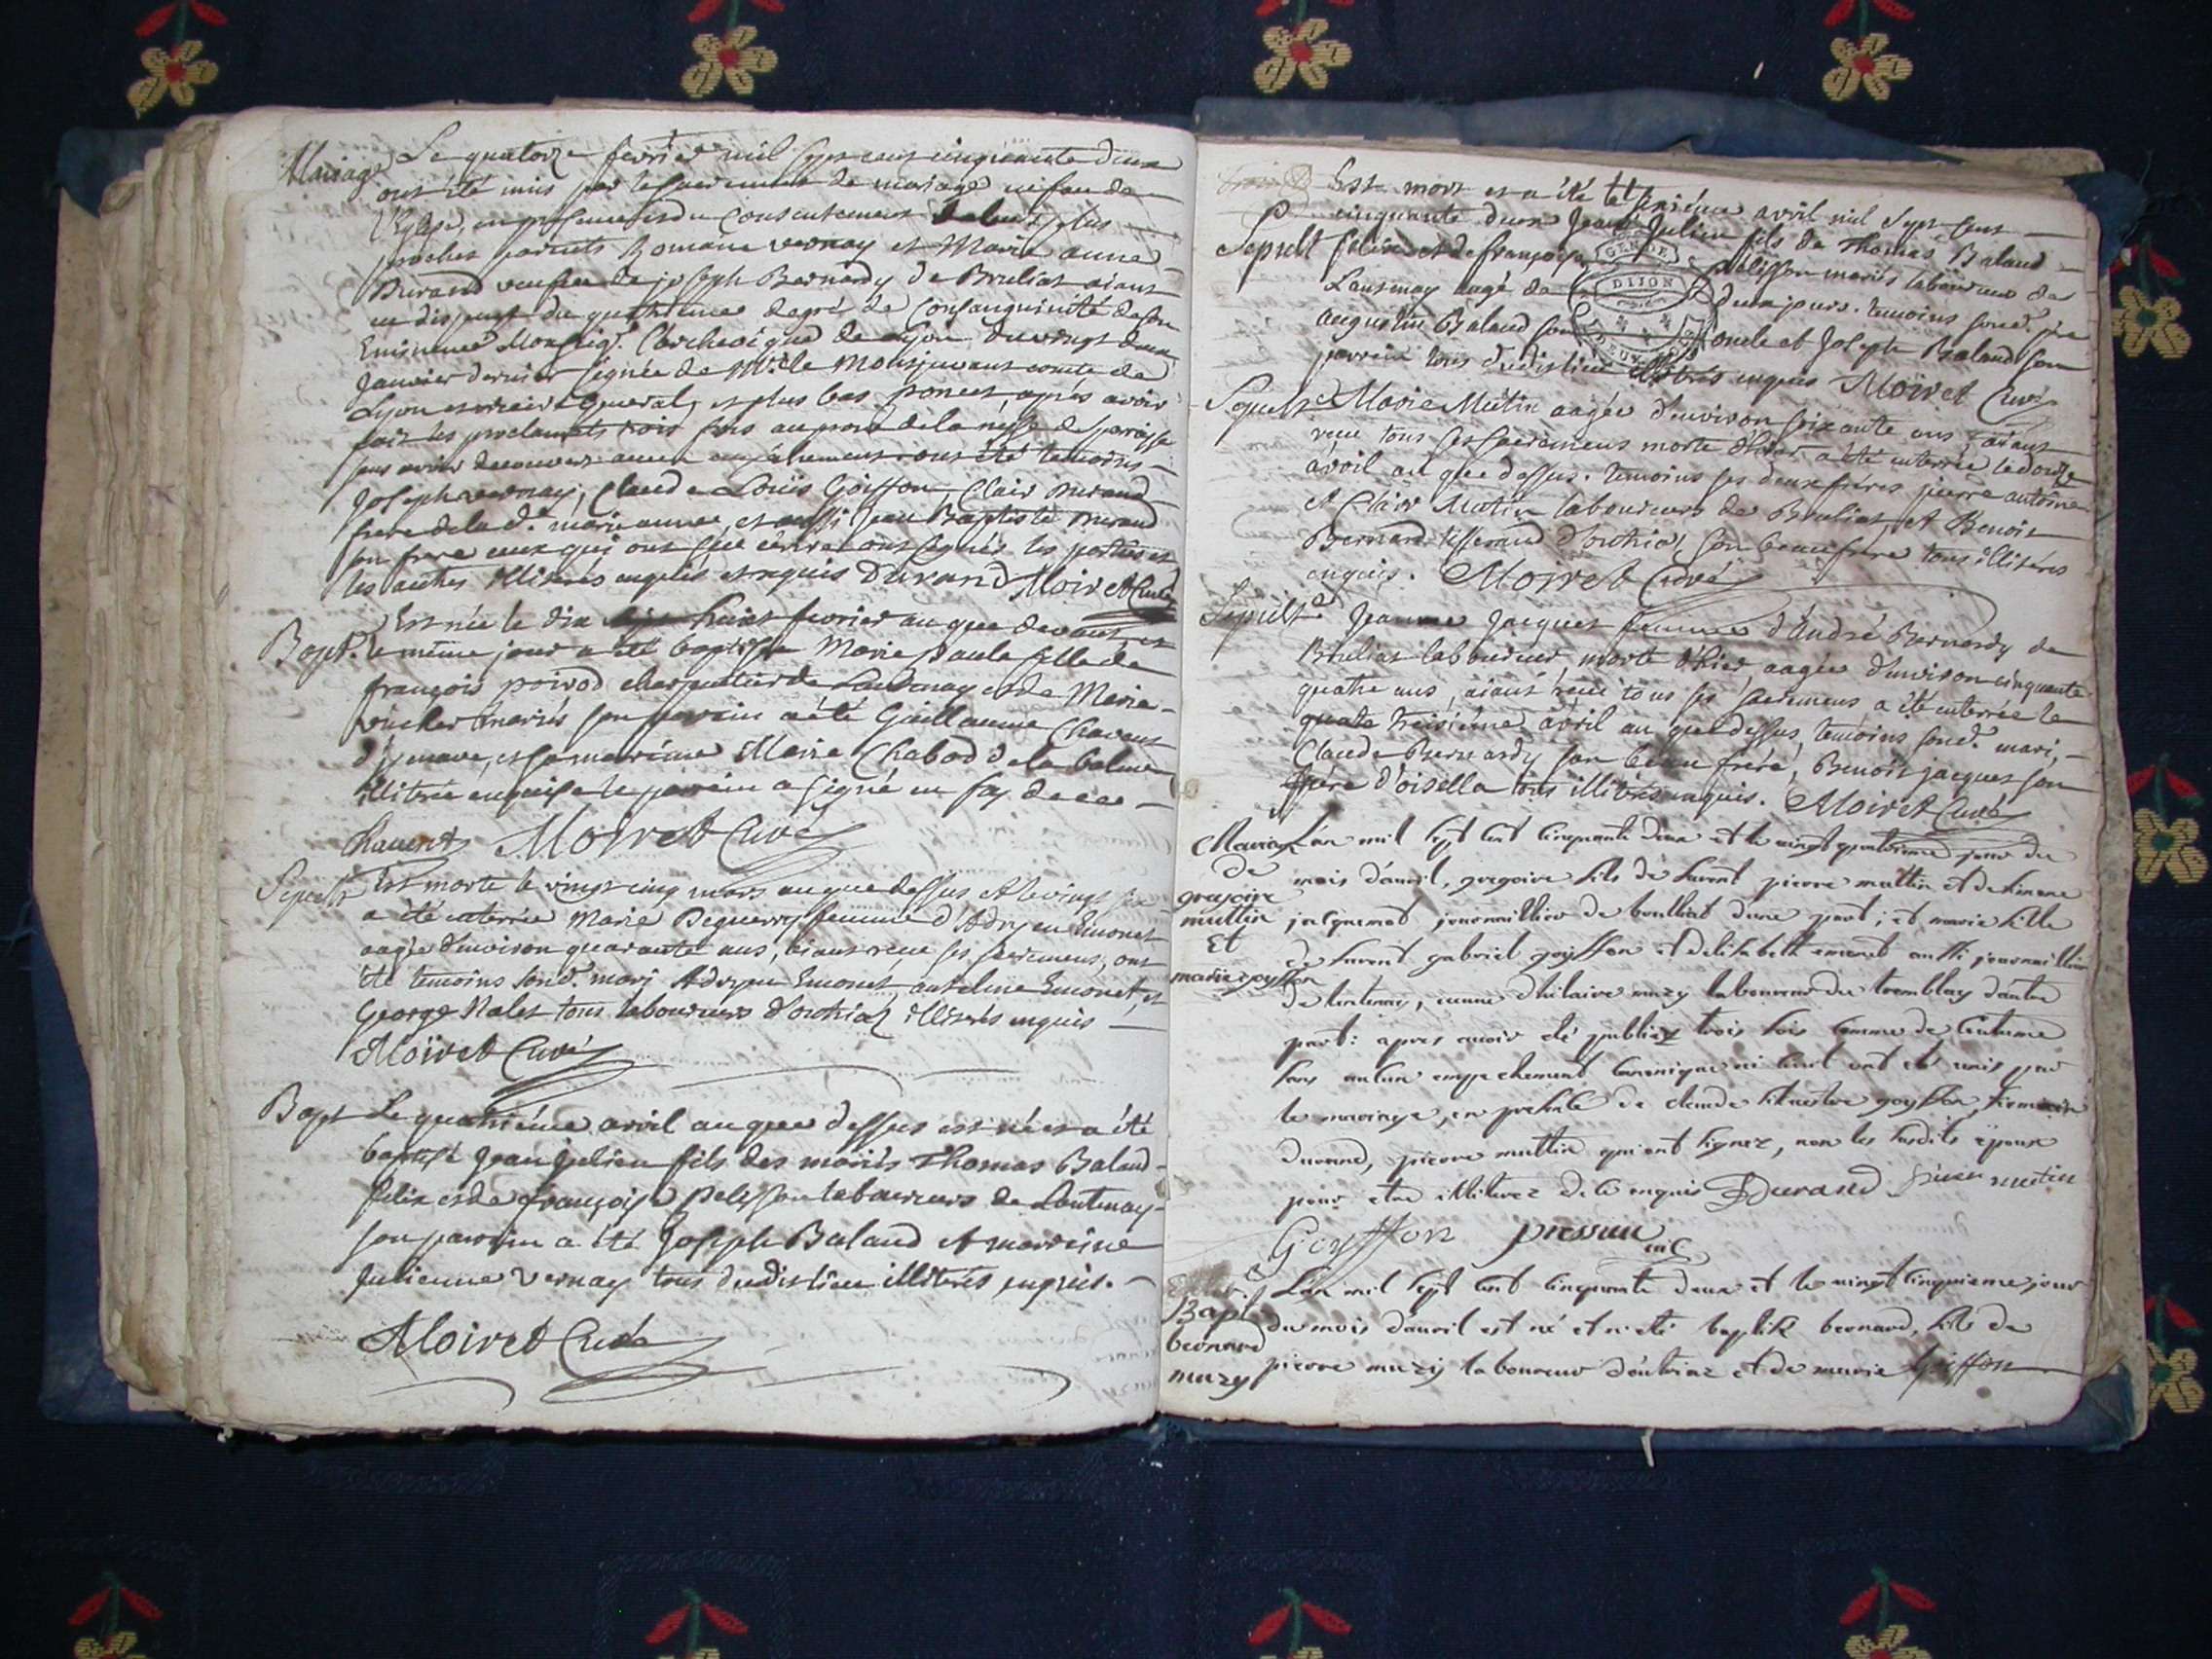 Mariage
Le quatorze fevrier mil sept cent cinquante deux
ont été unis par le sacrement de mariage en face de
l'Eglise, en presence et du consentement de leurs plus
proches parents Romain vernay et Marie anne
Durand veufve de joseph Bernardy de Bruliat aiant
eu dispense du quatrieme degré de Consanguinité de son
Eminence Monseigr. l'archevêque de Lyon du vingt deux
Janvier dernier signée de Mr. de Montjouvent comte de
Lyon et vicaire General, et plus bas poncet, après avoir
fait les proclamats trois fois au prone de la messe de paroisse
sans avoir decouvert aucun empêchement ont été temoins
Joseph vernay, Claude Loüis Goiffon, Clair Durand
frere de la de. marie anne, et aussi Jean Baptiste Durand
son frere ceux qui ont sceu écrire ont signés les parties et
les autres illiterés enquis et requis Durand Moiret Curé
Bapt.
Est née le dix huit fevrier an que devant, et
le même jour a été baptisée Marie paule fille de
françois poivod charpentier de Lantenay et de Marie
mariés son parrein a été Guillaume Chavent
et sa marreine Marie Chabod de la balme
illiterée enquise le parrein a signé en foy de ce
Chavent Moiret Curé
Sepult
Est morte le vingt cinq mars an que dessus et le vingt six
a été enterrée Marie Deguerry femme d'Adryen Emonet
aagée d'environ quarante ans, aiant receu ses sacremens, ont
été temoins sond. mary Adryen Emonet, antelme Emonet, et
George Nalet tous laboureurs d'outriaz illiterés enquis
Moiret Curé
Bapt
Le quatrième avril an que dessus est né et a été
baptisé Jean Julien fils des mariés Thomas Baland
felix et de françoise Pelisson laboureurs de Lantenay
son parrein a été Joseph Baland et marreine
Julienne Vernay tous dudit lieu illiterés enquis.
Moiret Curé
Sepult
Est mort et a été le sixiéme avril mil sept cens
cinquante deux Jean Julien fils de Thomas Baland
felix et de françoise Pelisson mariés laboureur de
Lantenay aagé de deux jours. temoins sond. pre
augustin Baland son oncle et Joseph Baland son
parrein tous dudit lieu illiterés enquis Moiret Curé
GENEDE
DIJON
Sepult
Marie Mutin aagée d'environ soixante ans, aiant
receu tous ses sacremens morte d'hier a été enterrée le douze
avril an que dessus. temoins ses deux freres pierre antoine
et Clair Mutin laboureurs de Bruliat, et Benoit
Bernard tisserand d'outriaz son beaufrere tous illiterés
enquis. Moiret Curé
Sepult
Jeanne Jacquet femme d'André Bernardy de
Bruliat laboureur, morte d'hier, aagée d'environ cinquante
quatre ans, aiant receu tous ses sacremens a été enterrée le
treisiéme avril an que dessus, temoins sond. mari,
Claude Bernardy son beau frere, Benoit jacquet son
frere d'oisella tous illiterés enquis. Moiret Curé
Mariage
de
gregoire
muttin
Et
marie goyffon
L'an mil sept cent cinquante deux et le vingt quatrieme jour du
mois d'avril, gregoire fils de furent pierre muttin et de
jacquemet journaillier de brulliat d'une part; et marie fille
de furent gabriel goyffon et d'elisabeth emonet aussi journaillier
de lentenay, veuve d'hilaire muzy laboureur du tremblay d'autre
part: apres avoir été publiez trois fois comme de coutume
sans aucun empechement canonique ni civil ont été unis par
le mariage, en presence de claude silvestre goyffon,
durand, pierre muttin qui ont signez, non les susdits époux
pour etre illiterez de ce enquis Durand pierre mutin
Goyffon pression
Bapt
bernard
muzy
L'an mil sept cent cinquante deux et le vingt cinquieme jour
du mois d'avril est né et a été baptisé bernard, fils de
pierre muzy laboureur d'outriaz et de marie Goiffon